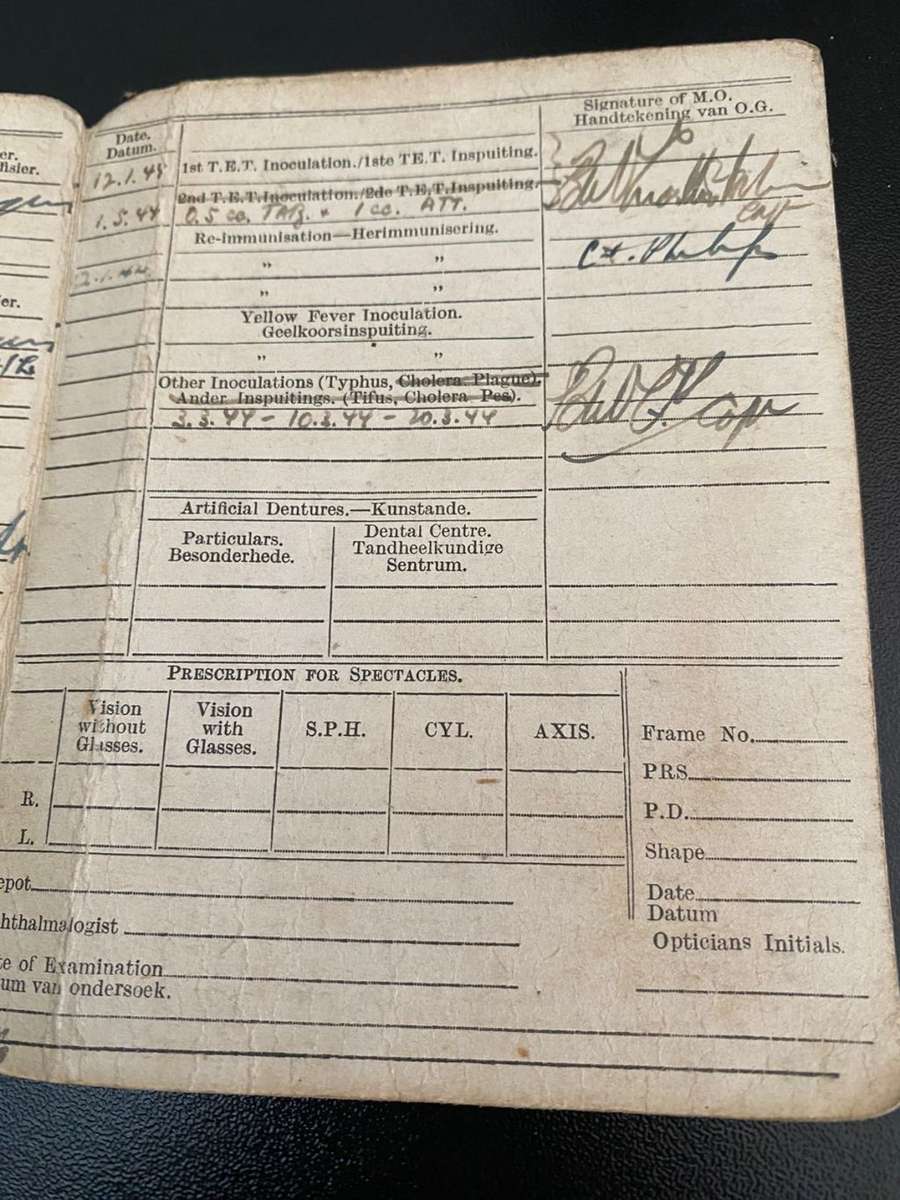 er.
fisier.
er.
Date.
Datum.
Signature of M.O.
Handtekening van O.G.
12.1.45 1st T.E.T. Inoculation./1ste TE.T. Inspuiting.
2nd T.E.T. Inoculation./2de T.E.T. Inspuiting.
1.5.44 0.5 cc. TAB. + 1 cc. ATT.
Capt
Re-immunisation—Herimmunisering.
" "
" "
Yellow Fever Inoculation.
Geelkoorsinspuiting.
" "
Other Inoculations (Typhus, Cholera Plague).
Ander Inspuitings. (Tifus, Cholera Pes).
3.3.44 - 10.3.44 - 20.3.44 Capt
Artificial Dentures.—Kunstande.
Particulars.
Besonderhede.
Dental Centre.
Tandheelkundige
Sentrum.
PRESCRIPTION FOR SPECTACLES.
Vision
without
Glasses.
Vision
with
Glasses.
S.P.H.
CYL.
AXIS.
R.
L.
Frame No.
PRS.
P.D.
Shape
Date
Datum
Opticians Initials.
epot
hthalmologist
te of Examination
um van ondersoek.